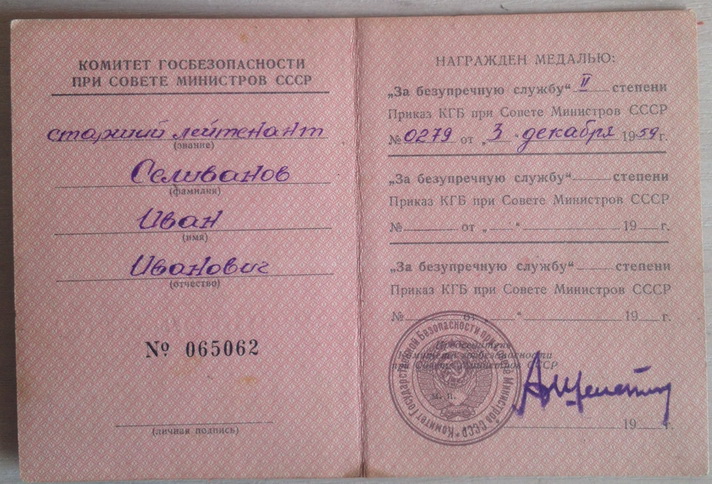 КОМИТЕТ ГОСБЕЗОПАСНОСТИ
ПРИ СОВЕТЕ МИНИСТРОВ СССР
старший лейтенант
(звание)
Селиванов
(фамилия)
Иван
(имя)
Иванович
(отчество)
№ 065062
(личная подпись)
НАГРАЖДЕН МЕДАЛЬЮ:
„За безупречную службу“ II степени
Приказ КГБ при Совете Министров СССР
№ 0279 от „3“ декабря 1959 г.
„За безупречную службу“ степени
Приказ КГБ при Совете Министров СССР
№ от „ “ 19 г.
„За безупречную службу“ степени
Приказ КГБ при Совете Министров СССР
№ от „ “ 19 г.
Председатель
Комитета госбезопасности
при Совете Министров СССР
М. П.
19 г.
Комитет Государственной Безопасности при Совета Министров СССР